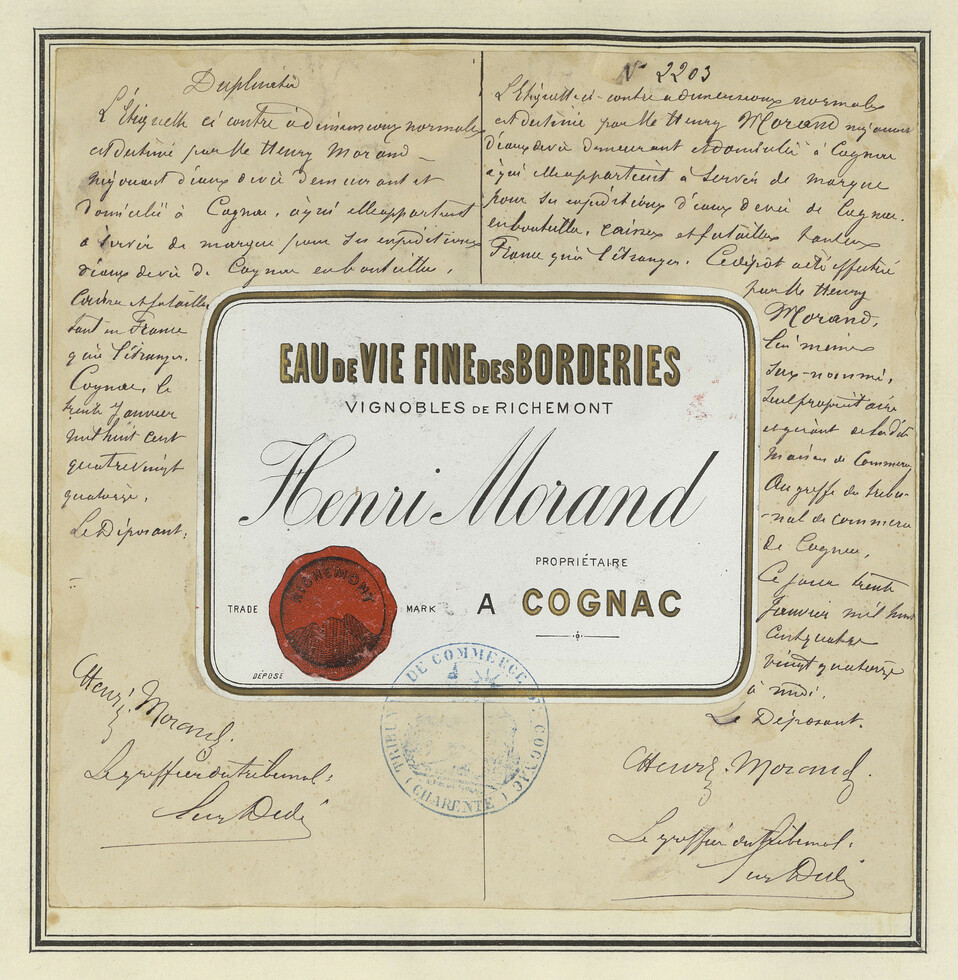 Duplicata
L'Etiquette ci contre à dimensions normales
est destiné par Mr Henry Morand
négociant d'eaux de vie demeurant et
domicilié à Cognac, à qui elle appartient
à servir de marque pour ses expéditions
d'eaux de vie de Cognac en bouteilles,
Caisses et futailles
tant en France
qu'à l'étranger.
Cognac, le
trente Janvier
mil huit cent
quatre vingt
quatorze.
Le Déposant:
Henri Morand.
Le greffier du tribunal:
N° 2203
L'Etiquette ci-contre a dimensions normales
est destiné par Mr Henry Morand négociant
d'eaux de vie demeurant et domicilié à Cognac
à qui elle appartient à servir de marque
pour ses expéditions d'eaux de vie de Cognac.
en bouteilles, caisses et futailles tant en
France qu'à l'étranger. Ce dépôt a été effectué
par Mr Henry
Morand,
lui même
sus-nommé,
seul propriétaire
et gérant de la dite
maison de Commerce
Au greffe du tribu-
-nal de commerce
de Cognac,
Ce jour trente
Janvier mil huit
cent quatre
vingt quatorze
à midi.
Le Déposant.
Henri Morand.
Le greffier du tribunal:
EAU DE VIE FINE DES BORDERIES
VIGNOBLES DE RICHEMONT
Henri Morand
PROPRIÉTAIRE
TRADE MARK A COGNAC
RICHEMONT
DÉPOSÉ
TRIBUNAL DE COMMERCE DE COGNAC
(CHARENTE)